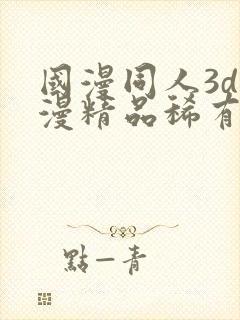 國漫同人3d
漫精品稀有
點—青